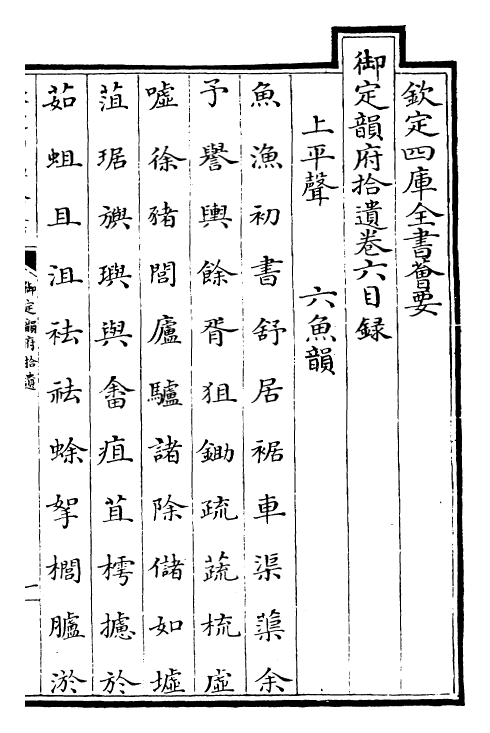 欽定四庫全書薈要
御定韻府拾遺卷六目録
上平聲　六魚韻
魚漁初書舒居裾車渠蕖余
予譽輿餘胥狙鋤疏蔬梳虛
噓徐豬閭廬驢諸除儲如墟
菹琚旟璵與畬疽苴樗攄於
茹蛆且沮袪祛蜍挐櫚臚淤
御定韻府拾遺
一